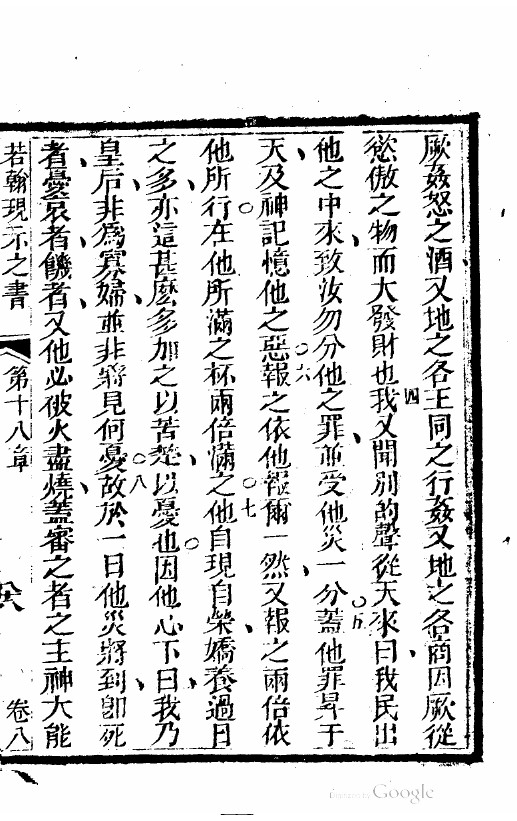 厥姦怒之酒又地之各王同之行姦又地之各商因厥從
慾傲之物而大發財也四我又聞別的聲從天來曰我民出
他之中來致汝勿分他之罪並受他災一分五蓋他罪昇于
天及神記憶他之惡六報之依他報爾一然又報之兩倍依
他所行在他所滿之杯兩倍滿之七他自現自榮嬌養過日
之多亦這甚麽多加之以苦楚以憂也因他心下曰我乃
皇后非爲寡婦並非將見何憂八故於一日他災將到卽死
者憂哀者饑者又他必被火盡燒蓋審之者之主神大能
若翰現示之書 第十八章 卷八
Google